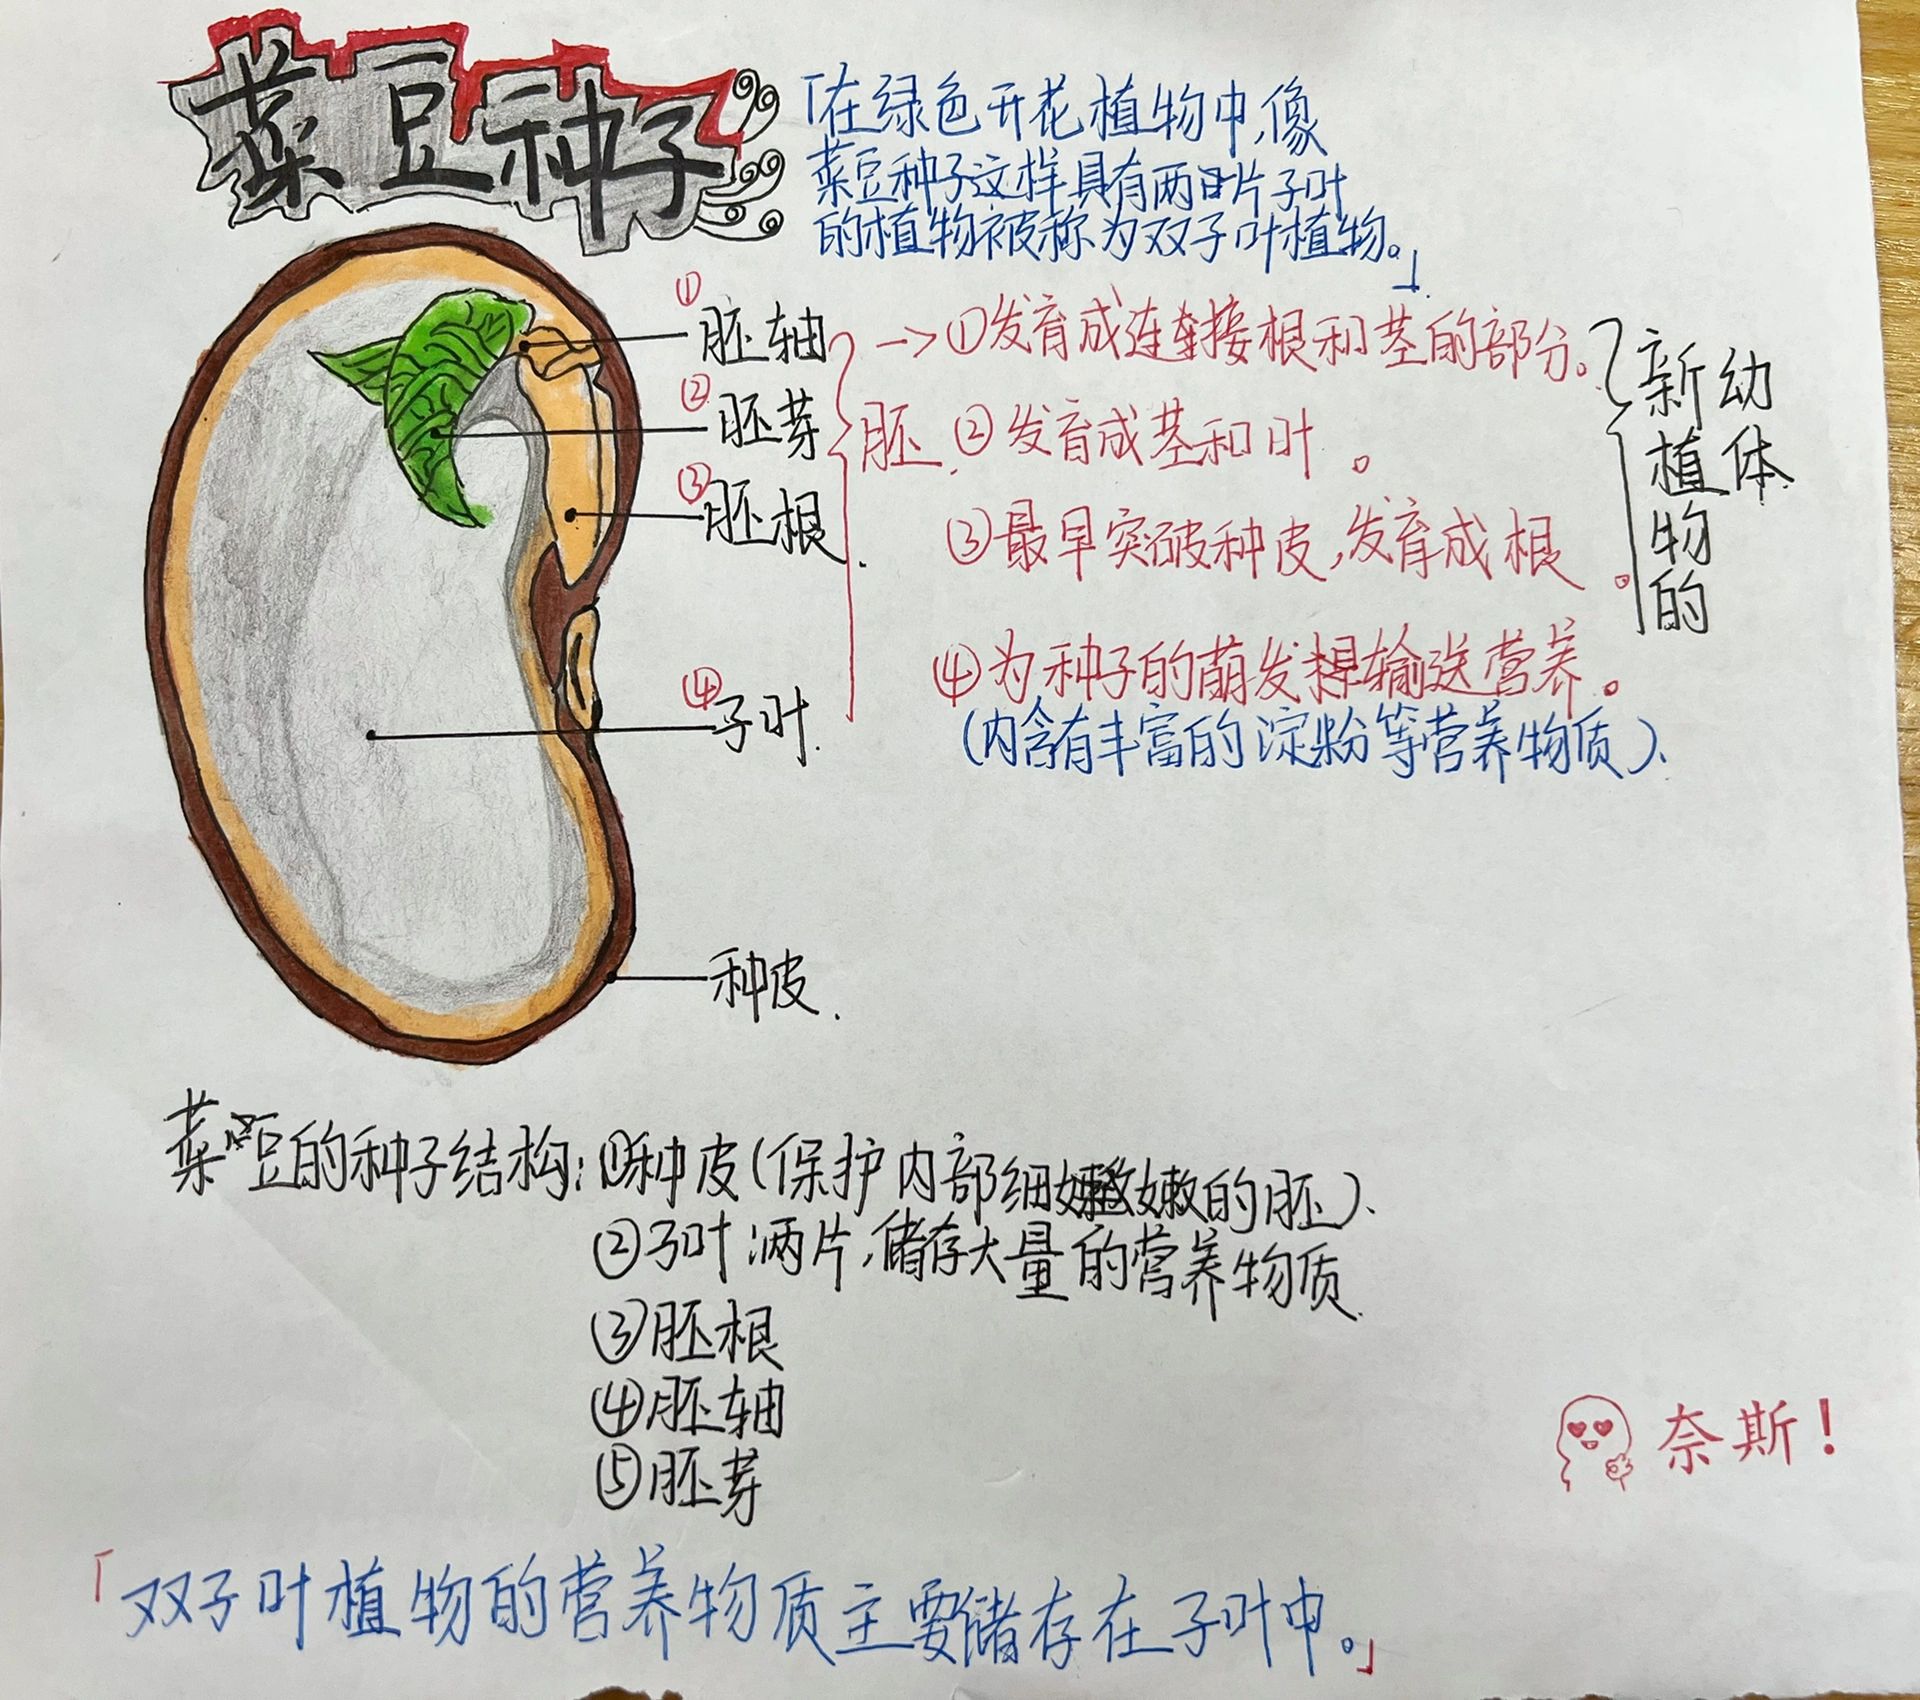 菜豆种子
「在绿色开花植物中,像
菜豆种子这样具有两片子叶
的植物被称为双子叶植物。」
①胚轴
②胚芽
③胚根.
④子叶.
胚.
→①发育成连接根和茎的部分。
②发育成茎和叶。
③最早突破种皮,发育成根。
④为种子的萌发提输送营养。
(内含有丰富的淀粉等营养物质)、
新植物的
幼体
种皮.
菜豆的种子结构:①种皮(保护内部细嫩的胚)、
②子叶:两片,储存大量的营养物质.
③胚根
④胚轴
⑤胚芽
奈斯!
「双子叶植物的营养物质主要储存在子叶中。」